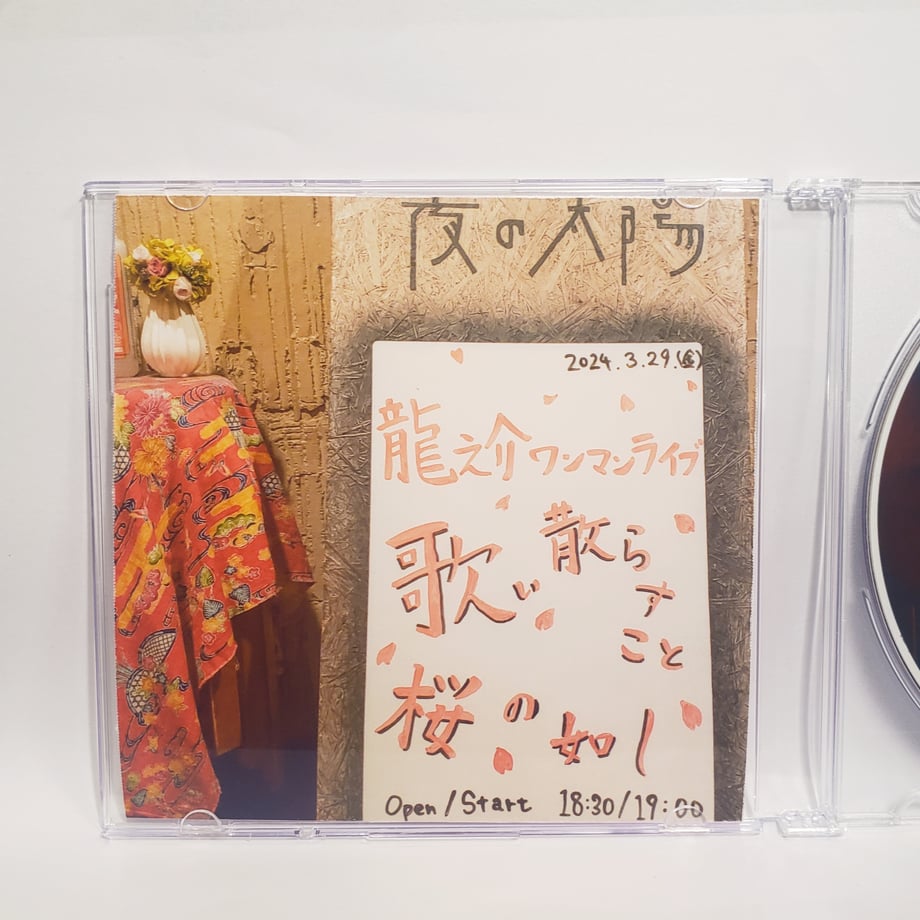 夜の太陽
2024.3.29.(金)
龍之介ワンマンライブ
歌い散らすこと
桜の如し
Open/Start 18:30/19:00